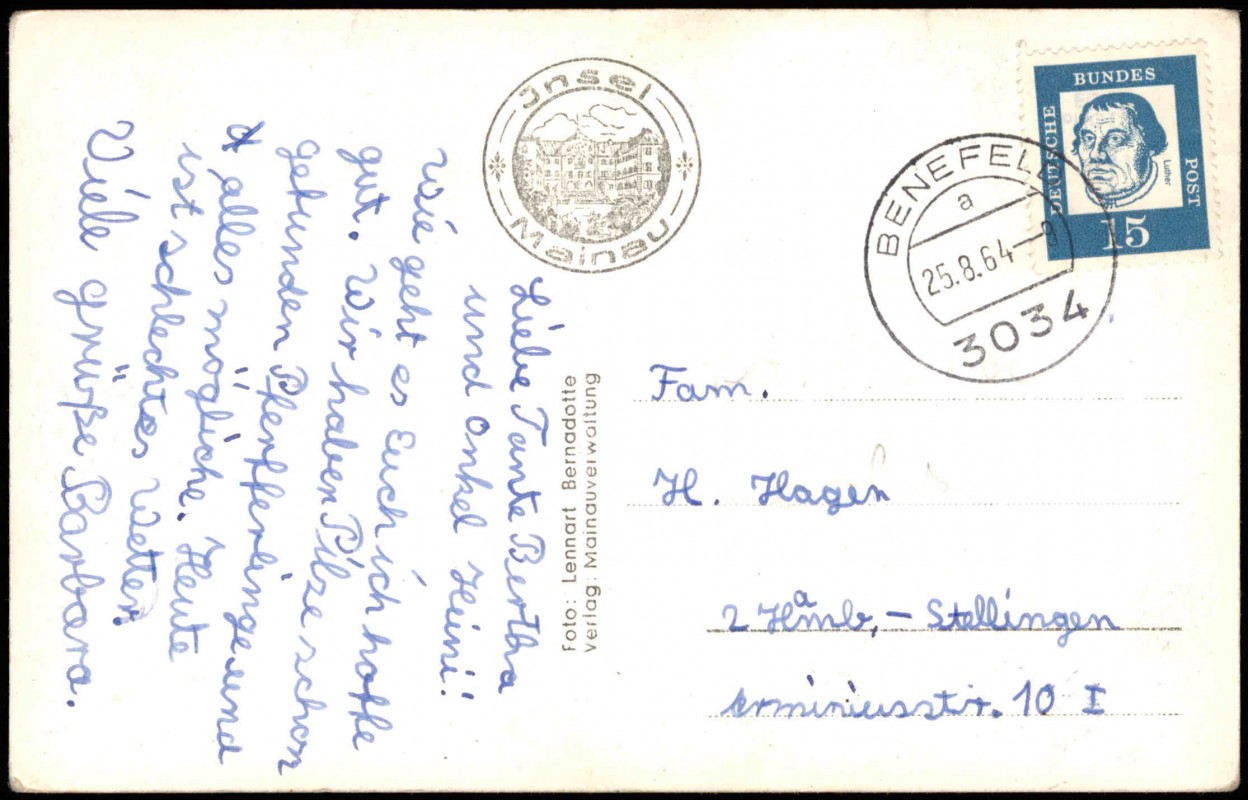 Liebe Tante Bertha
und onkel Heini!
wie geht es Euch ich hoffe
gut. Wir haben Pilze schon
gefunden Pferfferlinge und
alles mögliche. Heute
ist schlechtes Wetter.
Viele grüße Barbara.
Insel
Mainau
Foto: Lennart Bernadotte
Verlag: Mainauverwaltung
DEUTSCHE
BUNDES
POST
Luther
15
BENEFELD
a
25.8.64
3034
Fam.
H. Hagen
2 Hamb,- Stellingen
erminiusstr. 10 I